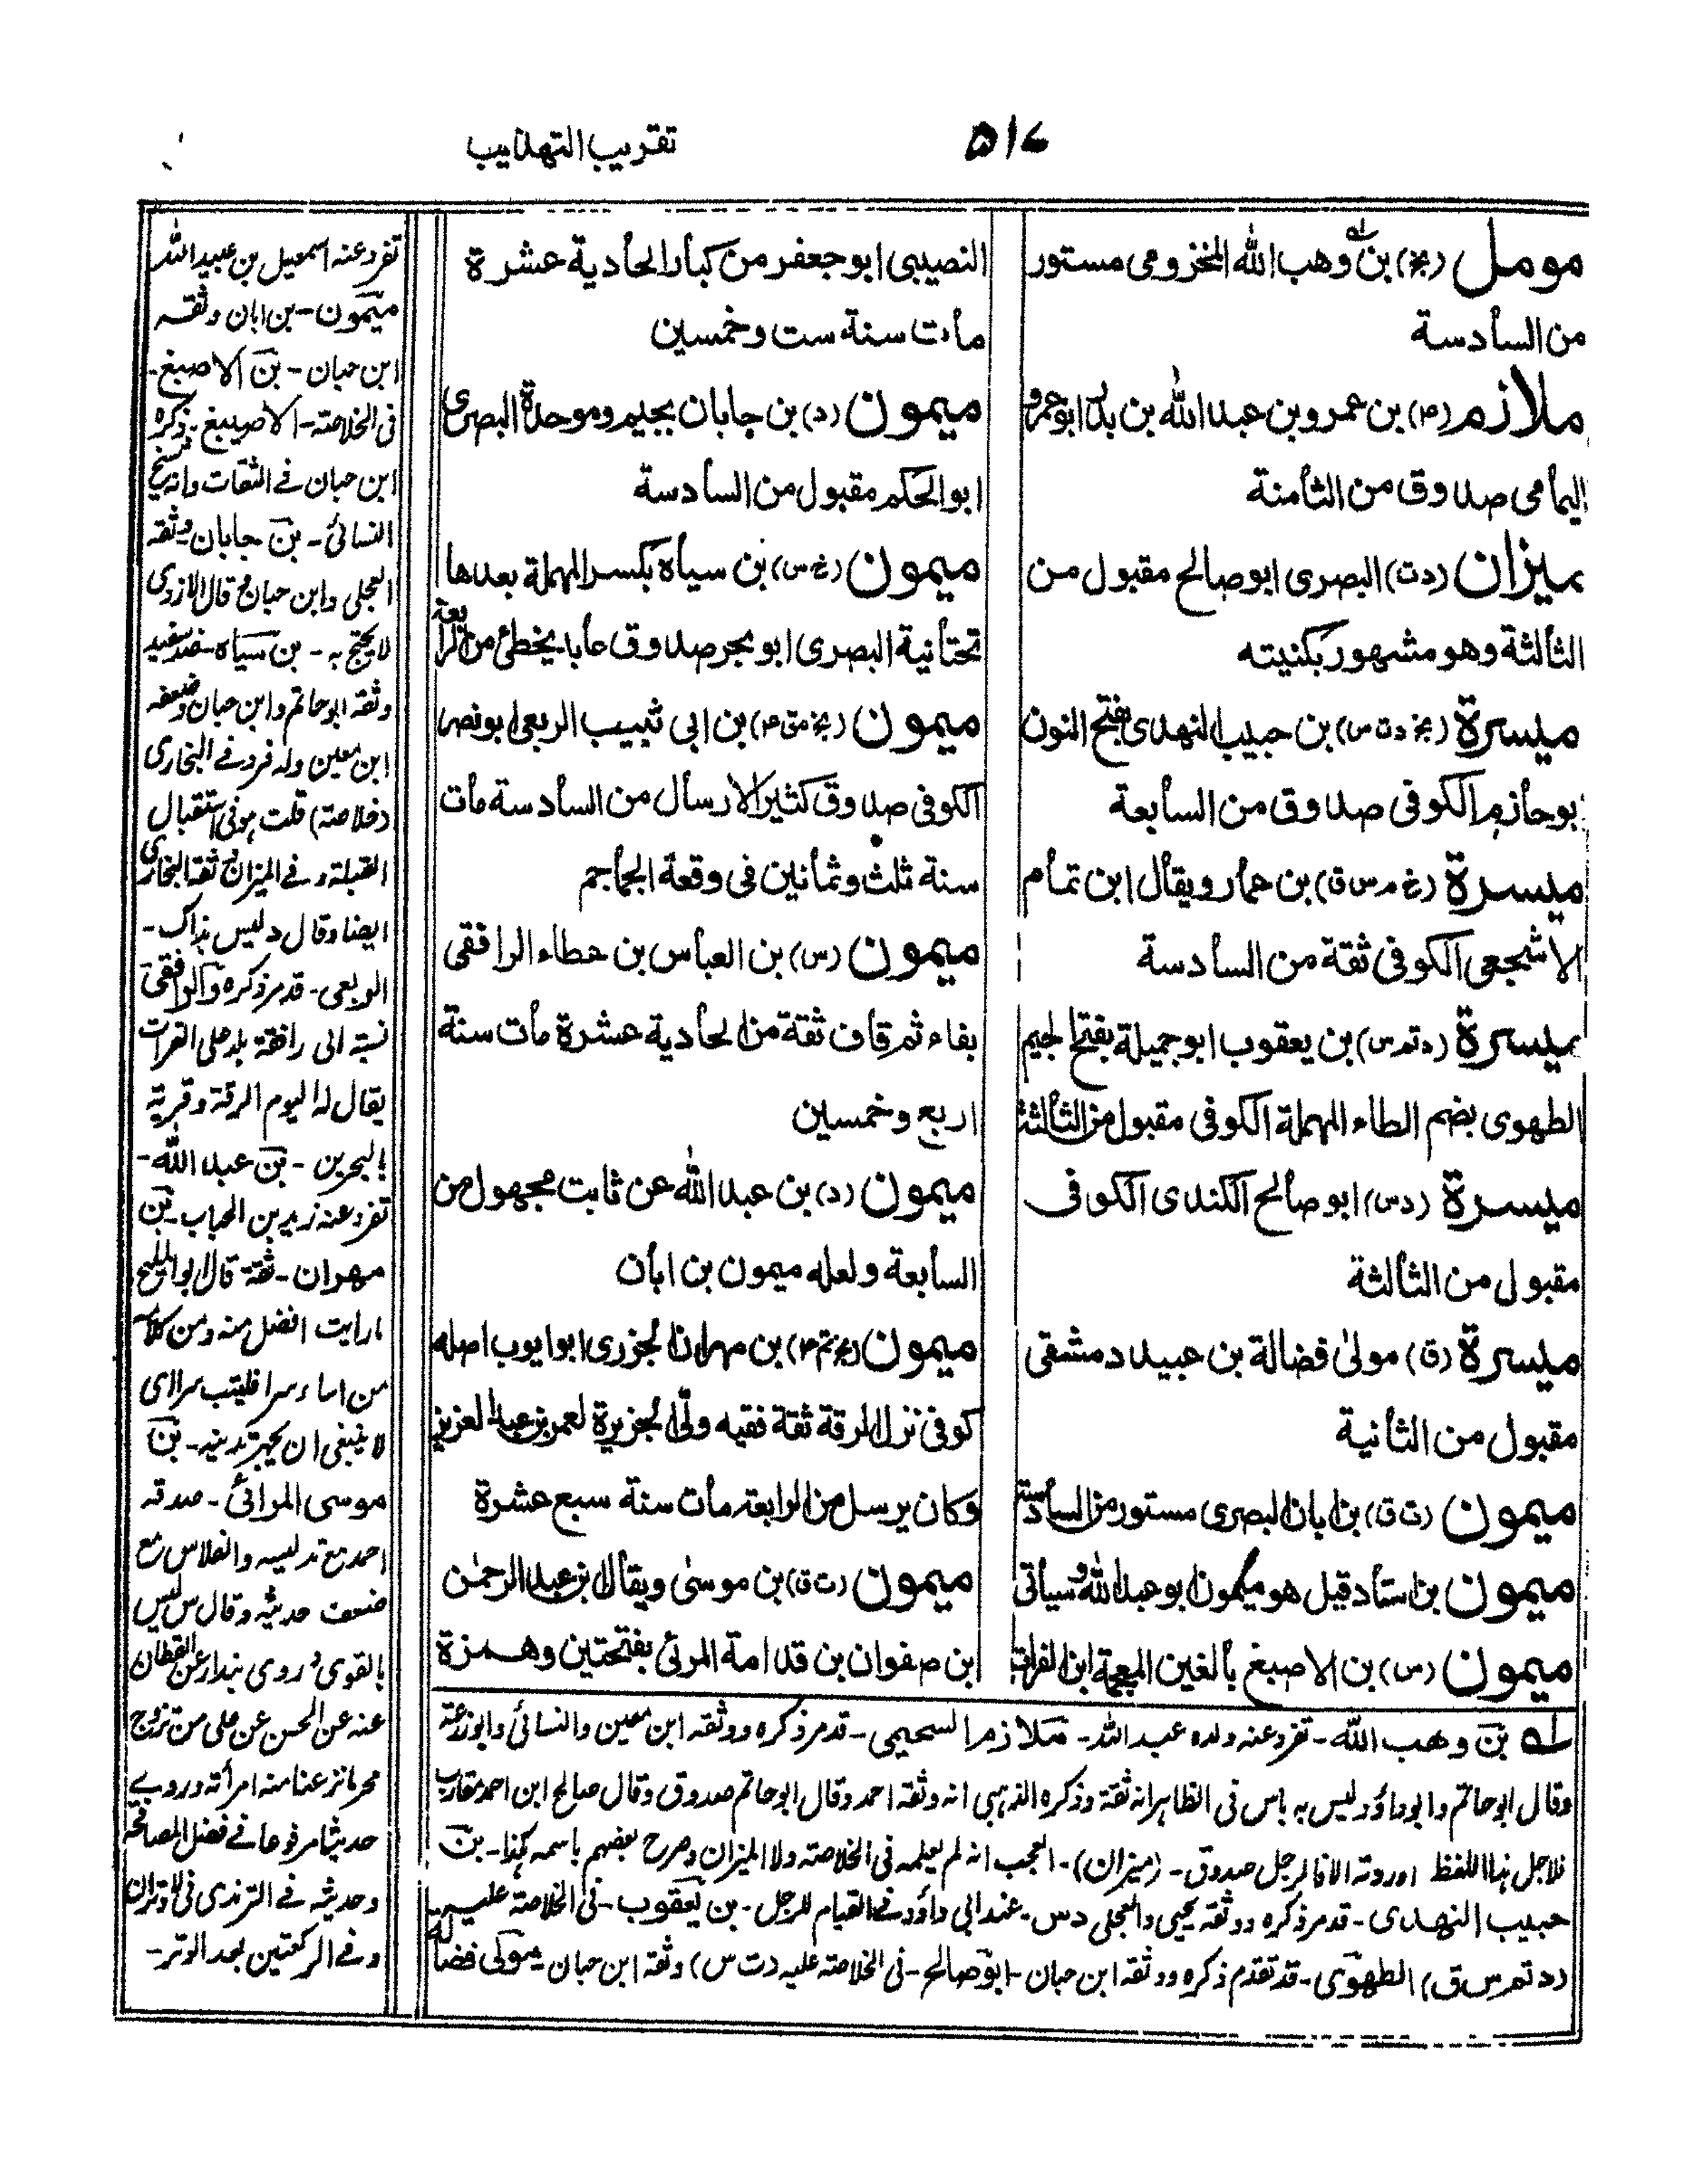 تقريب التهذيب
۵۱۷
مومل (بخ) بن وهب الله المخزومى مستور
من السادسة
ملازم (۴) بن عمرو بن عبد الله بن بدر ابو عمرو
اليمامى صدوق من الثامنة
ميزان (د ت) البصرى ابو صالح مقبول من
الثالثة وهو مشهور بكنيته
ميسرة (بخ د ت س) بن حبيب النهدى بفتح النون
بو حازم الكوفى صدوق من السابعة
ميسرة (خ م س ق) بن عمار ويقال ابن تمام
الاشجعى الكوفى ثقة من السادسة
ميسرة (د تم س) بن يعقوب ابو جميلة بفتح الجيم
الطهوى بضم الطاء المهملة الكوفى مقبول من الثالثة
ميسرة (د س) ابو صالح الكندى الكوفى
مقبول من الثالثة
ميسرة (ق) مولى فضالة بن عبيد دمشقى
مقبول من الثانية
ميمون (ت ق) بن ابان البصرى مستور من السادسة
ميمون بن استاد قيل هو ميمون ابو عبد الله وسياتى
ميمون (س) بن الاصبغ بالغين المعجمة ابن الفرات
النصيبى ابو جعفر من كبار الحادية عشرة
مات سنة ست وخمسين
ميمون (د) بن جابان بجيم وموحدة البصرى
ابو الحكم مقبول من السادسة
ميمون (خ س) بن سياه بكسر المهملة بعدها
تحتانية البصرى ابو بحر صدوق عابد يخطئ من الرابعة
ميمون (بخ مق ۴) بن ابى شبيب الربعى ابو نصر
الكوفى صدوق كثير الارسال من السادسة مات
سنة ثلث وثمانين فى وقعة الجماجم
ميمون (س) بن العباس بن عطاء الرافقى
بفاء ثم قاف ثقة من الحادية عشرة مات سنة
اربع وخمسين
ميمون (د) بن عبد الله عن ثابت مجهول من
السابعة ولعله ميمون بن ابان
ميمون (بخ م ۴) بن مهران الجزرى ابو ايوب اصله
كوفى نزل الرقة ثقة فقيه ولى الجزيرة لعمر بن عبد العزيز
وكان يرسل من الرابعة مات سنة سبع عشرة
ميمون (ت ق) بن موسى ويقال ابن عبد الرحمن
ابن صفوان بن قدامة المرئى بفتحتين وهمزة
له بن وهب الله - تفرد عنه ولده عبيد الله - ملازم السحيمى - قد مر ذكره ووثقه ابن معين والنسائى وابو زرعة
وقال ابو حاتم وابو داؤد ليس به باس فى الظاهر انه ثقة وذكره الذهبى انه وثقه احمد وقال ابو حاتم صدوق وقال صالح ابن احمد مقارب
فلاجل هذا اللفظ اوردته الا فالرجل صدوق - (ميزان) - العجب انه لم يعلمه فى الخلاصة ولا الميزان وصرح بعضهم باسمه كذا - بن
حبيب النهدى - قد مر ذكره ووثقه يحيى والعجلى د س - عند ابى داؤد فى القيام للرجل - بن يعقوب - فى الخلاصة عليه
(د تم س ق) الطهوى - قد تقدم ذكره ووثقه ابن حبان - ابو صالح - فى الخلاصة عليه (د ت س) وثقه ابن حبان - مولى فضالة
تفرد عنه اسمعيل بن عبيد الله
ميمون - بن ابان وثقه
ابن حبان - بن الاصبغ -
فى الخلاصة - الاصيبغ - ذكره
ابن حبان فى الثقات وانه شيخ
النسائى - بن جابان وثقه
العجلى وابن حبان قال الازدى
لا يحتج به - بن سياه - ضد سفيد
وثقه ابو حاتم وابن حبان وضعفه
ابن معين وله فرد فى البخارى
(خلاصة) قلت هو فى استقبال
القبلة وفى الميزان وثقه البخارى
ايضا وقال د ليس بذاك -
الربعى - قد مر ذكره والرافقى
نسبة الى رافقة بلد على الفرات
يقال له اليوم الرقة وقرية
بالبحرين - بن عبد الله -
تفرد عنه زيد بن الحباب - بن
مهران - ثقة قال ابو المليح
ما رايت افضل منه ومن كلامه
من اساء سرا فليتب سرا
لا ينبغى ان يجهر بدينه - بن
موسى المرائى - صدقه
احمد مع تدليسه والفلاس مع
ضعف حديثه وقال س ليس
بالقوى وروى بندار عن القطان
عنه عن الحسن عن على من تزوج
امرأته وروى
حديثا مرفوعا فى فضل المصافحة
وحديثه فى الترمذى فى الوتر
وفى الركعتين بعد الوتر -